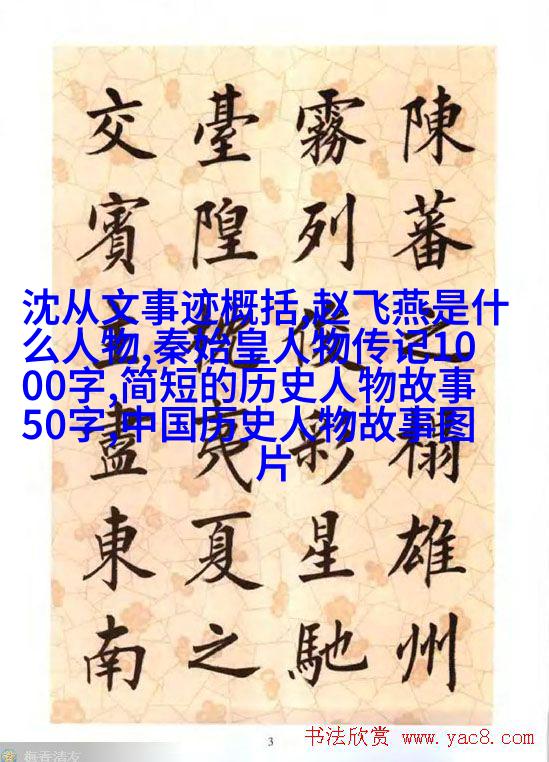 陳蕃之榻雄州
霧列俊彩星馳
臺隍枕夷夏之
交賓主盡東南
沈从文事迹概括,赵飞燕是什
么人物,秦始皇人物传记10
00字,简短的历史人物故事
50字,中国历史人物故事图
片
3
书法欣赏 www.yac8.com